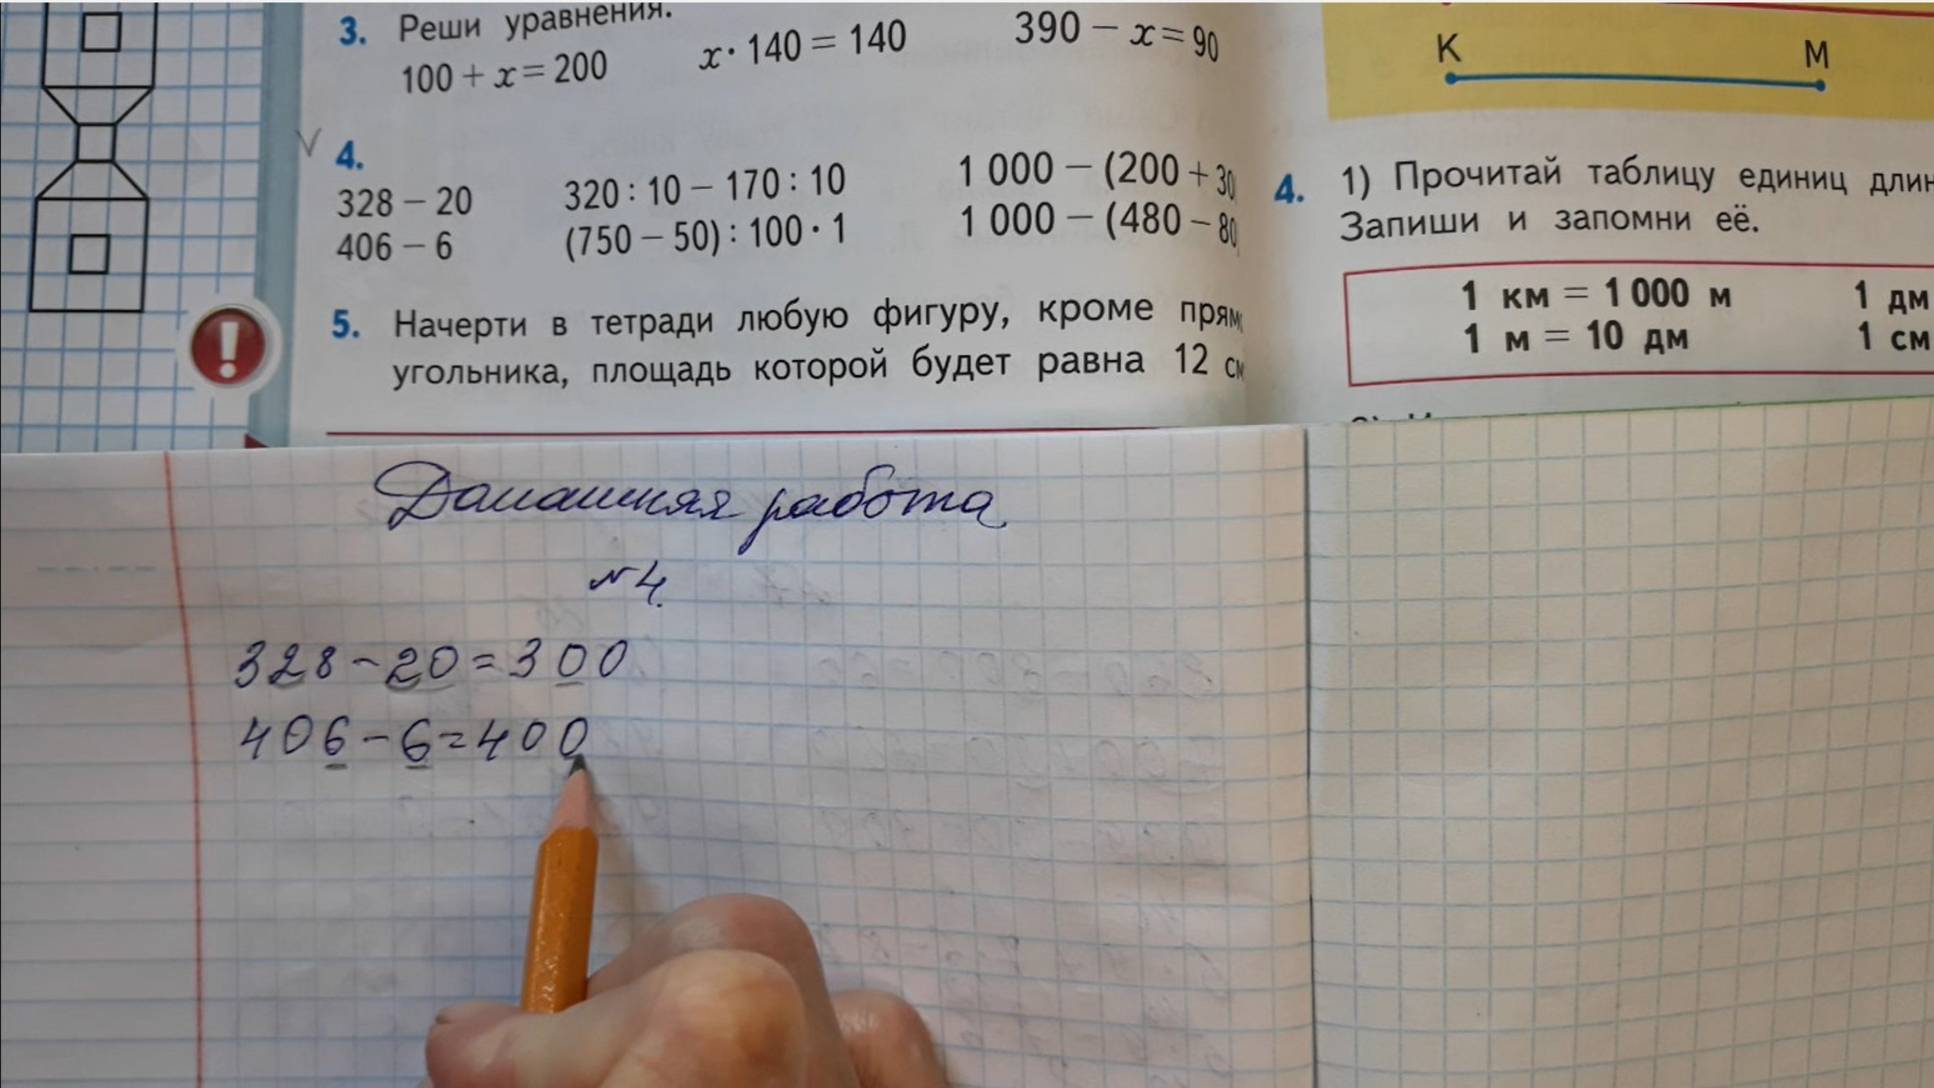 3. Реши уравнения.
100 + x = 200 x · 140 = 140 390 − x = 90
4.
328 − 20 320 : 10 − 170 : 10 1 000 − (200 + 30
406 − 6 (750 − 50) : 100 · 1 1 000 − (480 − 80
5. Начерти в тетради любую фигуру, кроме прям
угольника, площадь которой будет равна 12 см
!
K M
4. 1) Прочитай таблицу единиц длин
Запиши и запомни её.
1 км = 1 000 м 1 дм
1 м = 10 дм 1 см
Домашняя работа
№4.
328-20=300
406-6=400